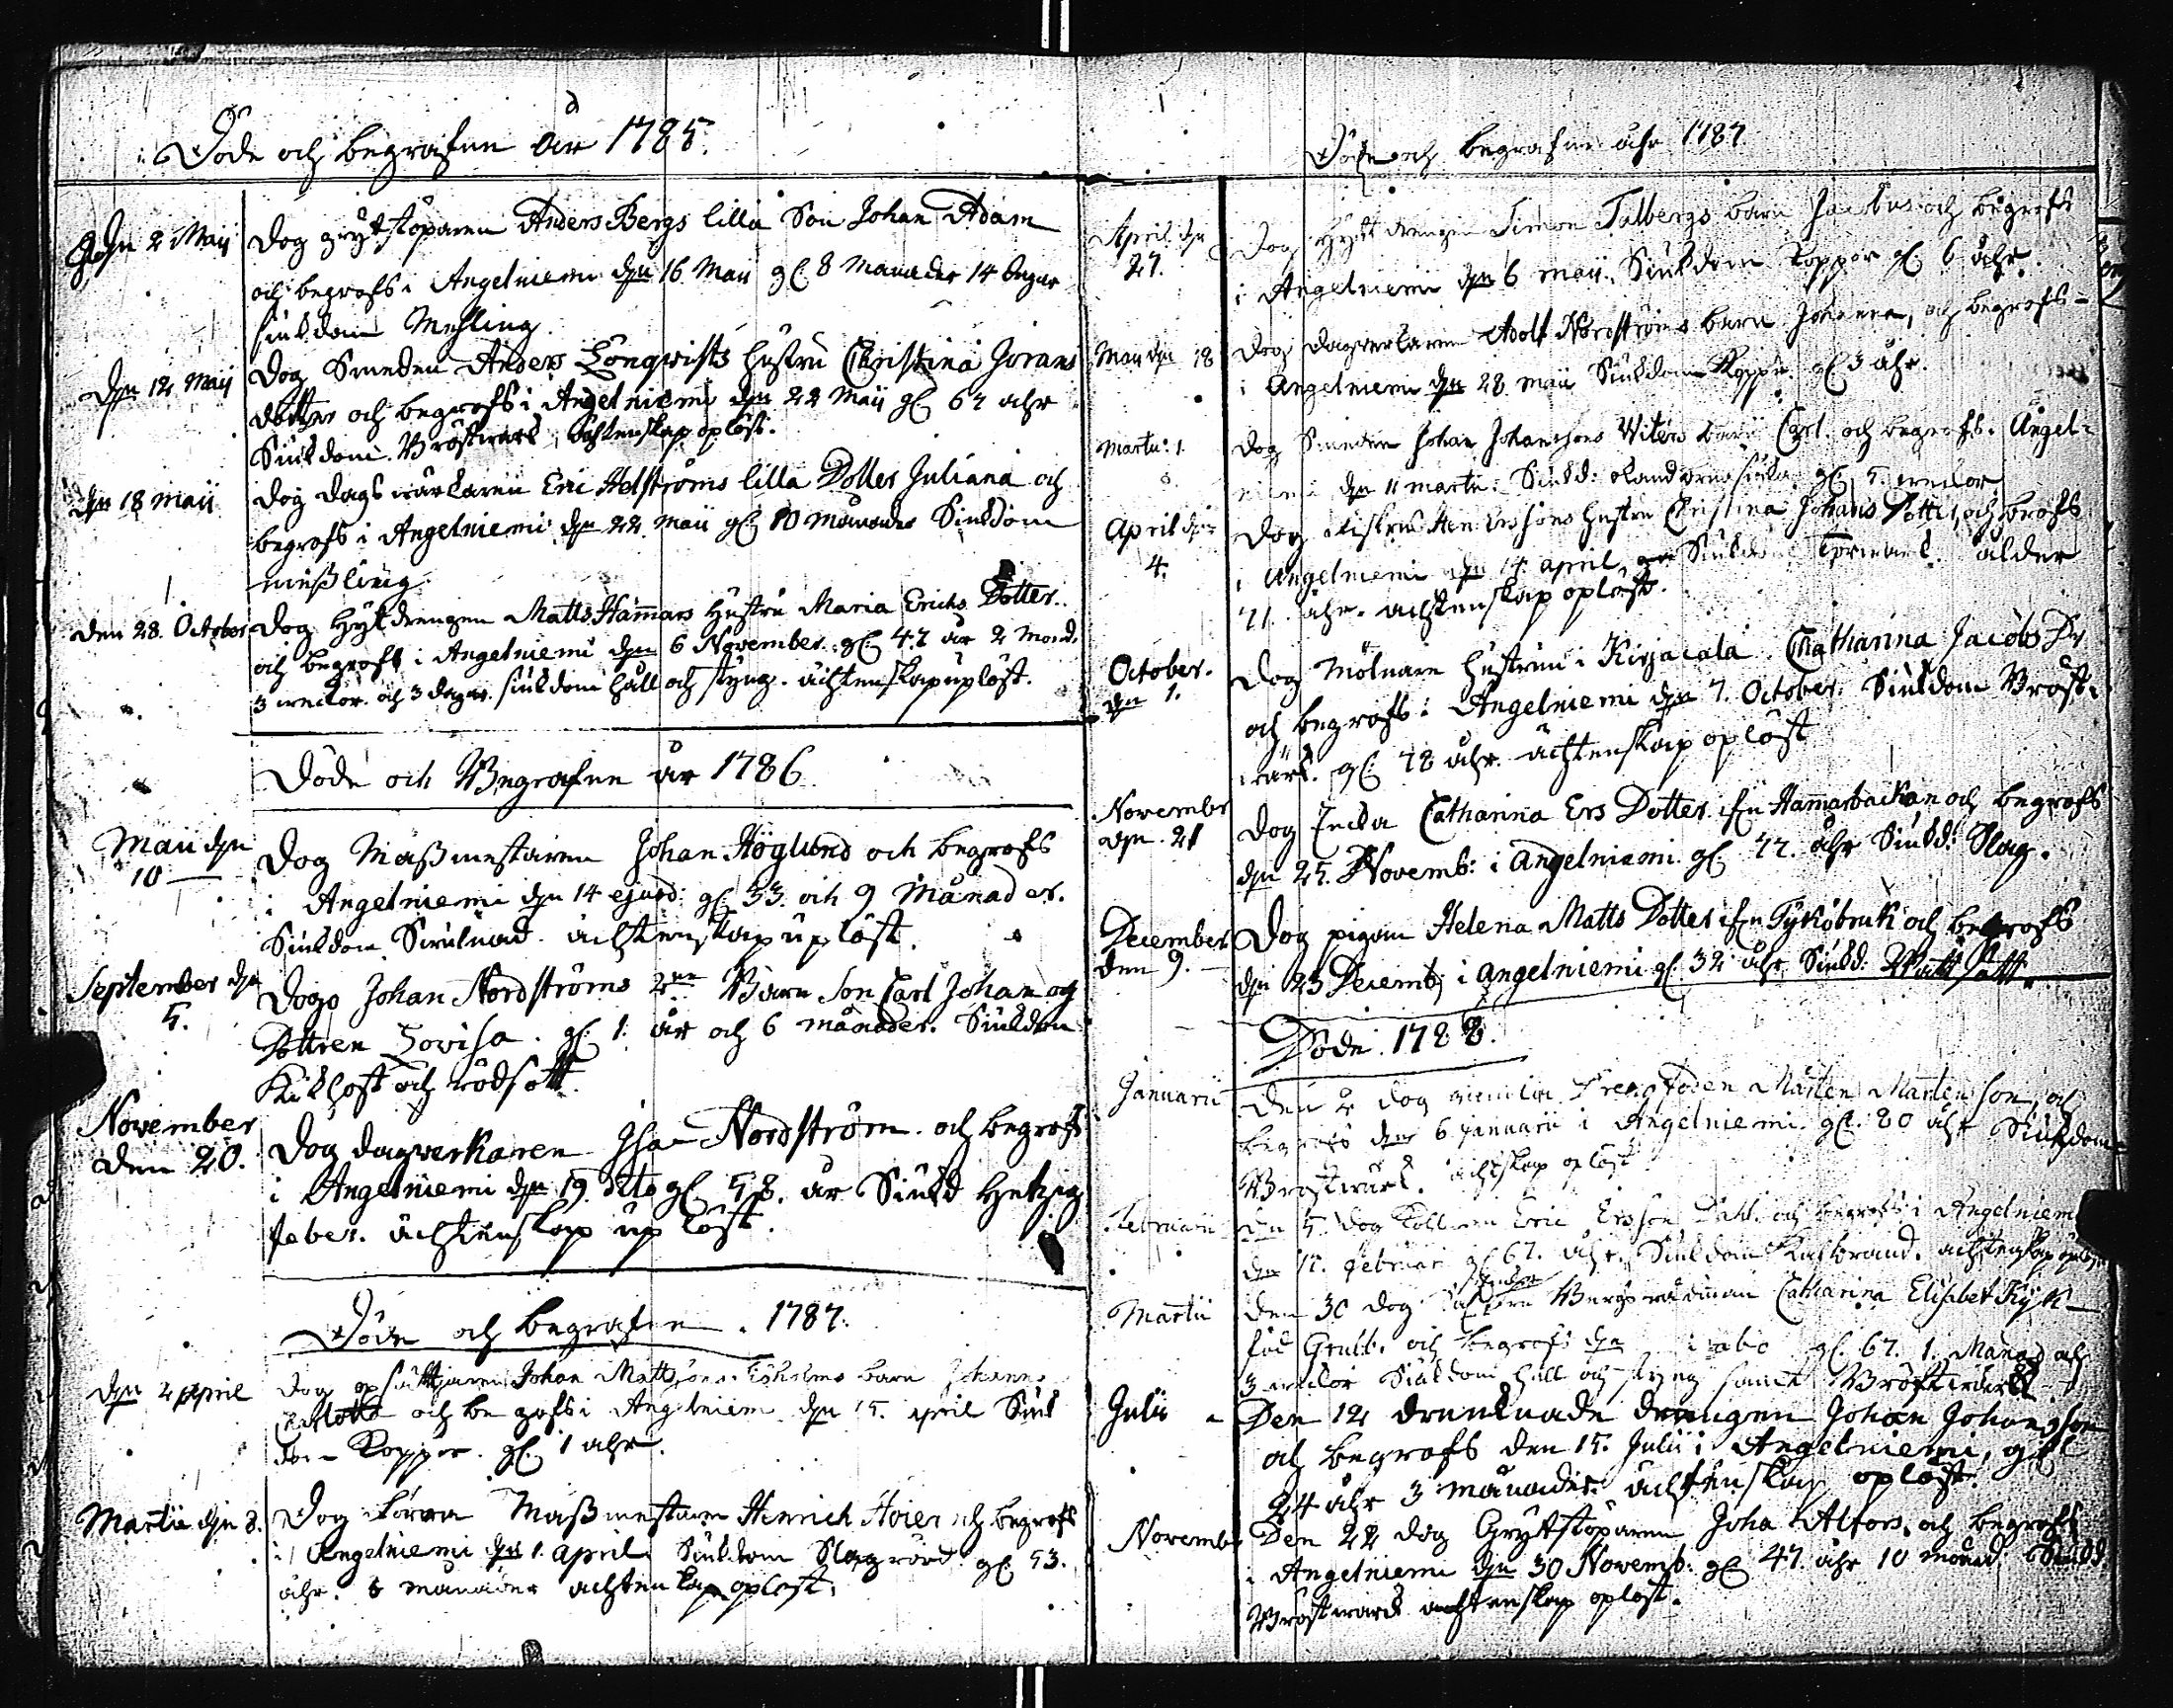 Döde och begrafne år 1785.
den 2 Maij Dog grytstöparen Anders Bergs lilla Son Johan Adam
och begrofs i Angelniemi den 16 Maii gl. 8 Månader 14 dagar
siukdom Meßling.
den 12 Maij Dog Smeden Anders Lönqvists hustru Christina Jörans
dotter och begrofs i Angelniemi den 22 Maij gl. 67 åhr
Siukdom Bröstwärk, ächtenskap oplöst.
den 18 maii Dog dagswärkaren Eric Helströms lilla Dotter Juliana och
begrofs i Angelniemi den 22 Maii gl. 10 månader Siukdom
meßling.
den 28. October Dog Hytdrengen Matts Hammars Hustru Maria Erichs Dotter.
och begrofs i Angelniemi den 6 November. gl. 47 år 2 Månd.
3 weckor och 3 dagar. siukdom håll och styng. ächtenskap uplöst.
Döde och Begrafne år 1786
Maii den
10 Dog Maßmestaren Johan Höglund och begrofs
i Angelniemi den 14 ejusd: gl. 33 och 9 Månader.
Siukdom ächtenskap uplöst.
September den
5. Dogo Johan Nordströms 2ne Barn Son Carl Johan och
Dottren Lovisa. gl. 1. år och 6 månader. Siukdom
Kikhost och rödsott.
November
den 20. Dog dagwerkaren Nordström och begrofs
i Angelniemi den 19. dito gl. 58. år Siukd Hetzig
feber. ächtenskap uplöst.
Döde och begrafne. 1787.
den 2 april Dog Johan Mattsons barn Johanna
Charlotta och begrofs i Angelniemi den 15. april Siuk
dom Koppor. gl. 1 åhr.
Martii den 8. Dog förra Maßmestaren Henrich Höier och begrofs
i Angelniemi den 1. april Siukdom Slag gl. 53.
åhr. 6 månader ächtenskap oplöst.
Döde och begrafne åhr 1787
April den
27. Dog Hytt drengen Simon Talbergs barn och begrofs
i Angelniemi den 6 maii. Siukdom Koppor gl. 6 åhr.
Maii den 18 Dog dagverkaren Adolf Nordströms barn Johanna, och begrofs
i Angelniemi den 28 maii Siukdom Koppor. gl. 3 åhr.
Martii: 1. Dog Smeden Johan Johanssons Witers barn Carl. och begrofs i Angel-
niemi den 11 martii. Siukd: gl. 5. weckor
April den
4. Dog Erssons hustru Christina Johans Dotter, och begrofs
i Angelniemi den 14 april, Siukdom ålder
71 åhr. ächtenskap oplöst.
October.
den 1. Dog Mölnarn hustrun i Kirjacala. Chatharina Jacobs Dr
och begrofs i Angelniemi den 7. October. Siukdom Bröst-
wärk. gl. 48 åhr. ächtenskap oplöst
Novembr
den 21 Dog Enckan Catharina Ers Dotter ifrån Hamarbackan och begrofs
den 25. Novemb: i Angelniemi gl. 77. åhr Siukd: Slag.
December
den 9. Dog pigan Helena Matts Dotter ifrån Tykobruk och begrofs
den 23 Decemb: i Angelniemi gl. 32 åhr Siukd:
Döde. 1788.
Januarii den 2 dog gamla Mårten Mårtensson, och
begrofs den 6 januarii i Angelniemi. gl. 80 åhr Siukdom
Bröstwärk. ächtskap oplöst
Februarii den 5. dog Kolaren Eric Ersson och begrofs i Angelniemi
den 17. Februari gl. 67. åhr. Siukdom Kallbrand. ächtenskap
Martii den 30 dog Catharina Elisabet
föd Grubb. och begrofs den i Åbo gl. 67. 1. Månad och
3 weckor Siukdom håll och styng samt Bröstwärk
Julii Den 12 drunknade drengen Johan Johansson
och begrofs den 15. Julii i Angelniemi, gl
24 åhr 3 månader. ächtenskap oplöst.
Novemb: Den 22 dog Grytstöparen Joha Alfors. och begrofs
i Angelniemi den 30 Novemb: gl. 47. åhr 10 månad: Siukd
Bröstwärck ächtenskap oplöst.